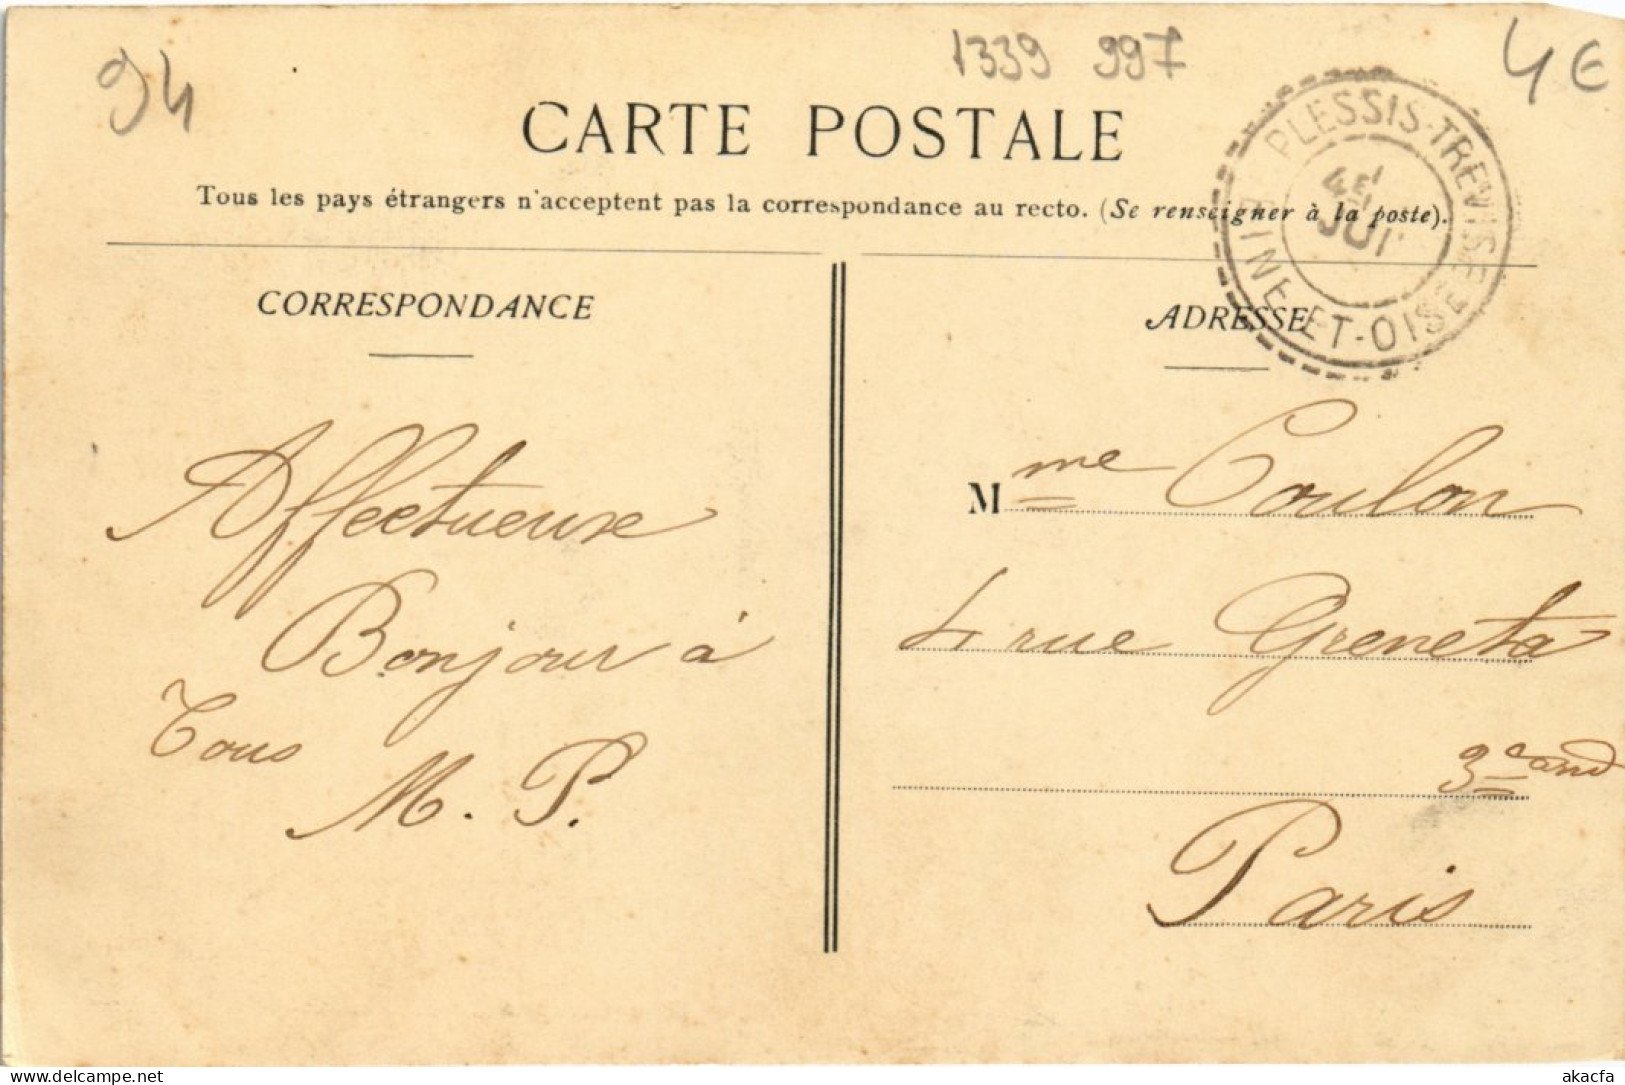 94
1339 997
4€
CARTE POSTALE
Tous les pays étrangers n'acceptent pas la correspondance au recto. (Se renseigner à la poste).
PLESSIS-TREVISE
SEINE-ET-OISE
CORRESPONDANCE
Affectueuse
Bonjour à
Tous
M. P.
ADRESSE
Mme Coulon
4 rue Greneta
3e arrd
Paris
delcampe.net
akacfa